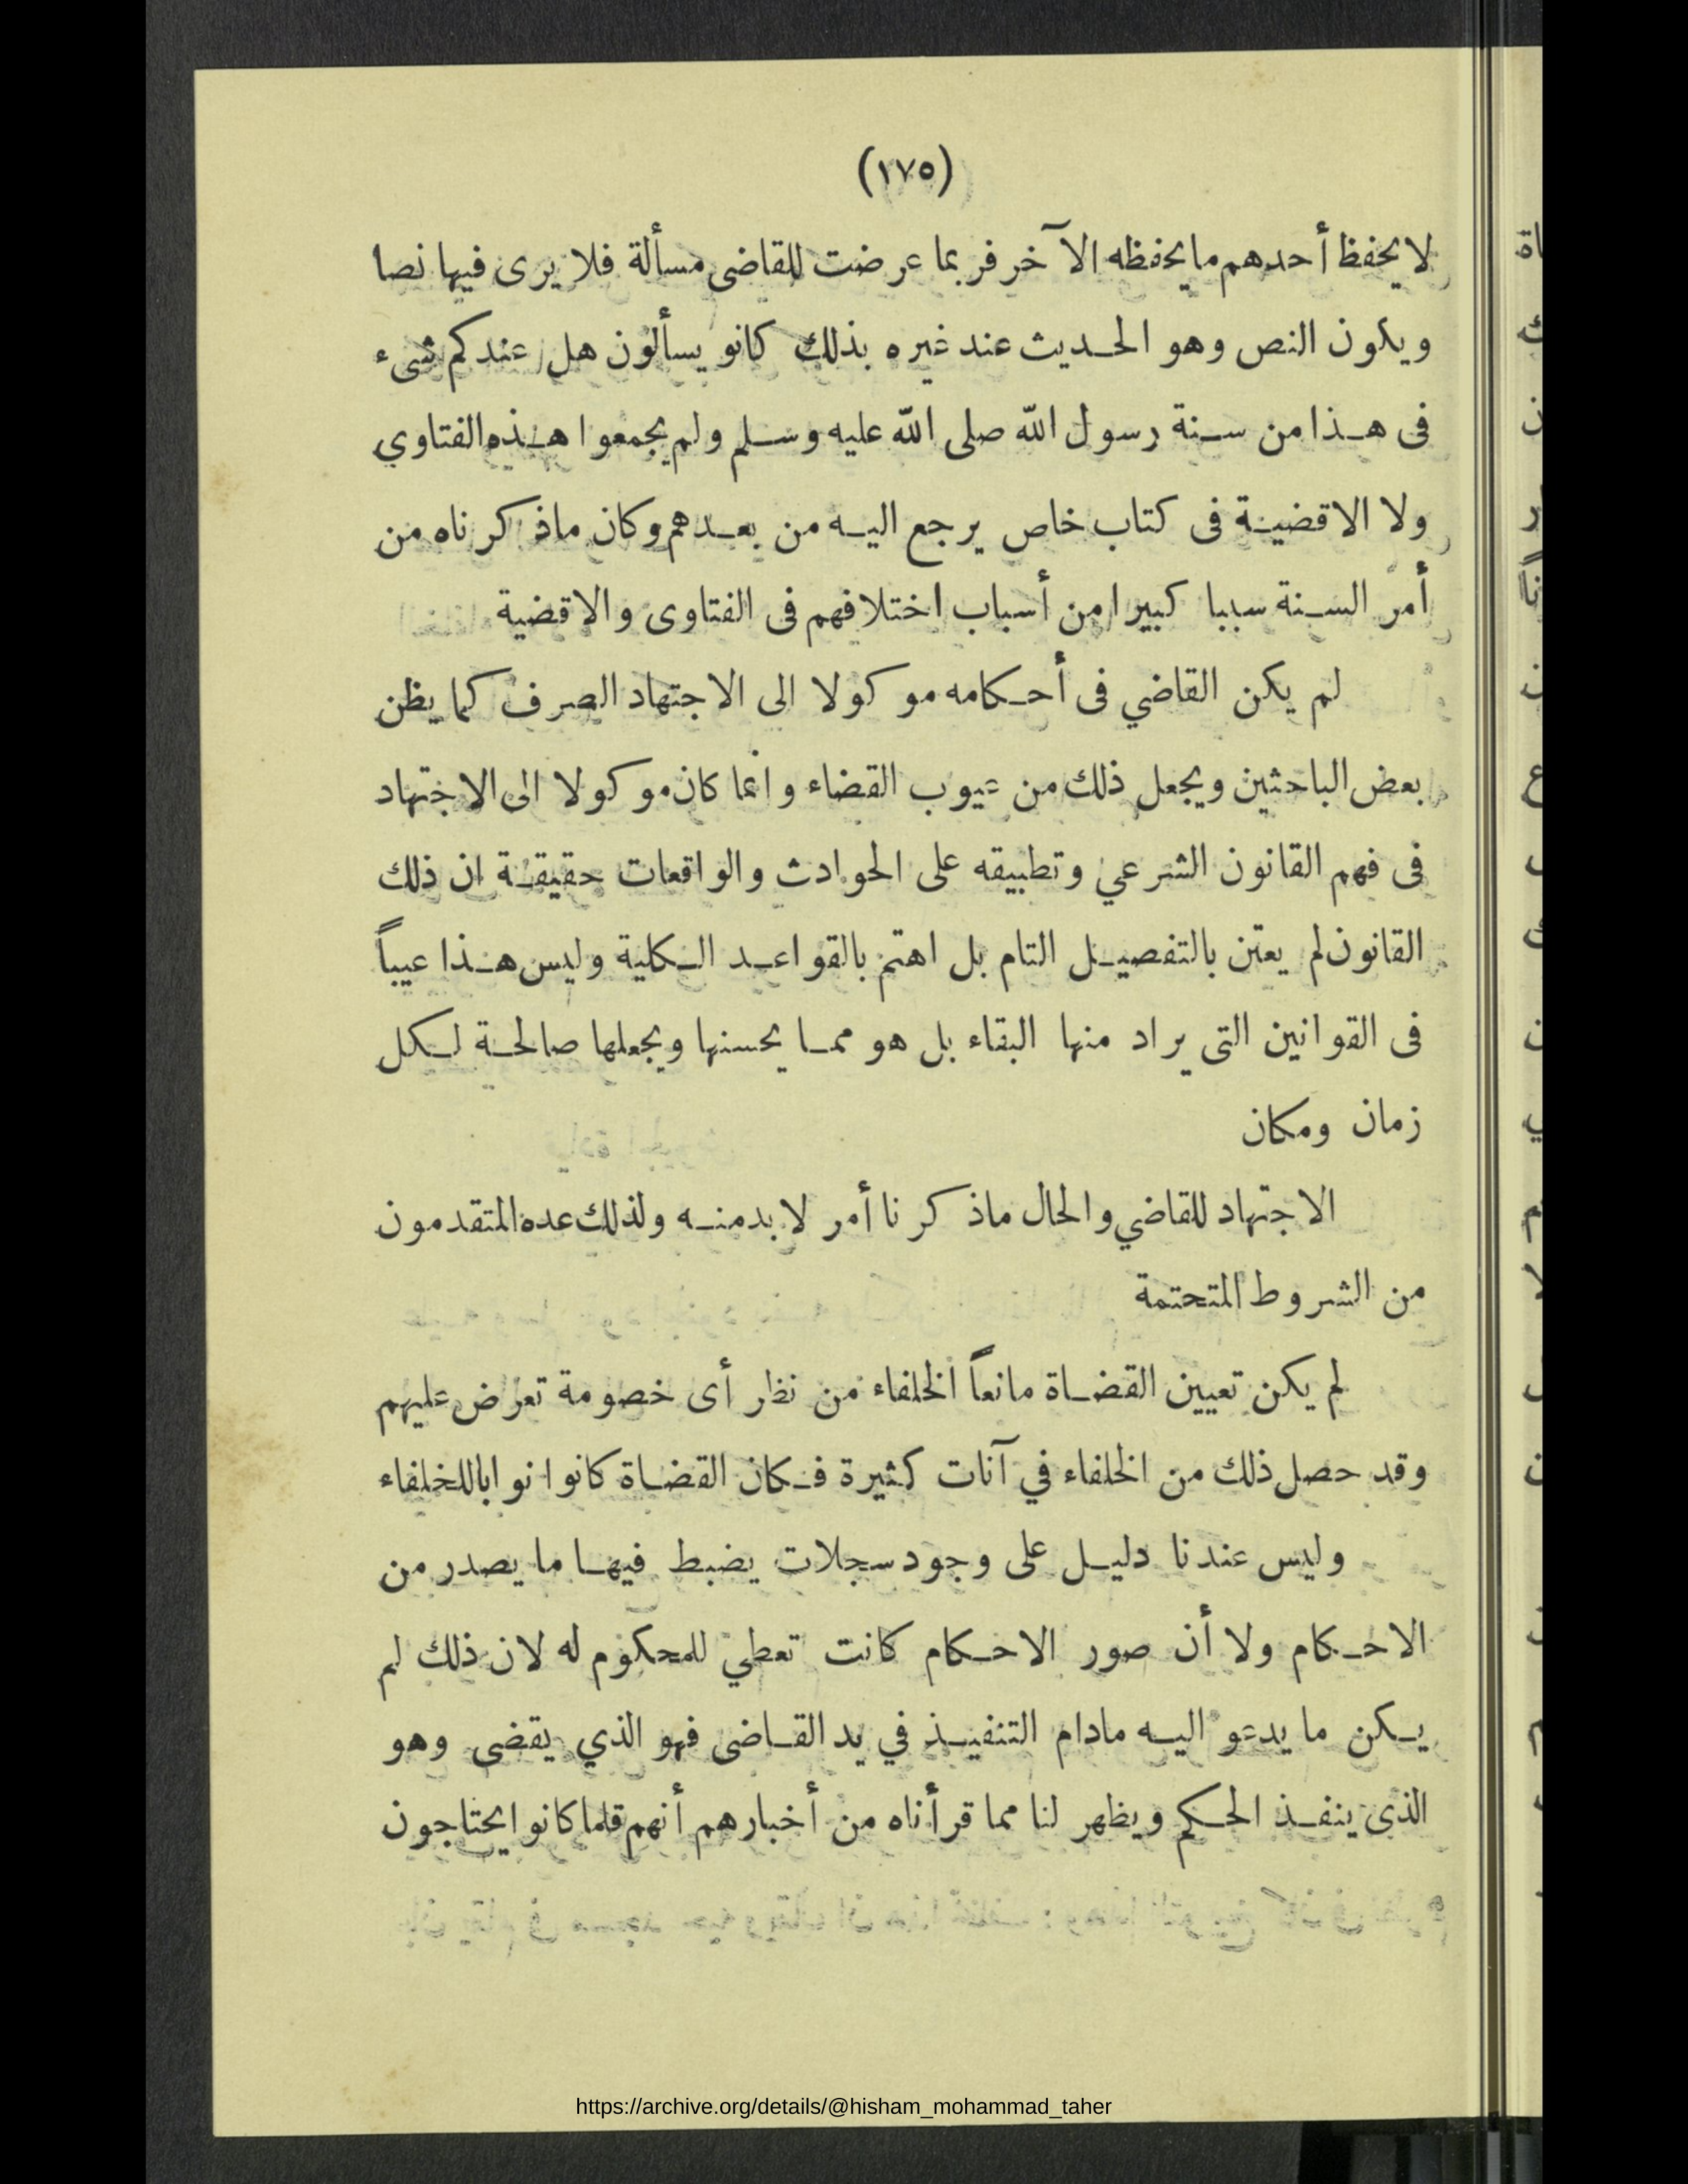 (١٧٥)
لا يحفظ أحدهم ما يحفظه الآخر فربما عرضت للقاضى مسألة فلا يرى فيها نصا
ويكون النص وهو الحديث عند غيره بذلك كانو يسألون هل عندكم شىء
فى هذا من سنة رسول الله صلى الله عليه وسلم ولم يجمعوا هذه الفتاوي
ولا الاقضية فى كتاب خاص يرجع اليه من بعدهم وكان ماذكرناه من
أمر السنة سببا كبيرا من أسباب اختلافهم فى الفتاوى والاقضية
لم يكن القاضي فى أحكامه موكولا الى الاجتهاد الصرف كما يظن
بعض الباحثين ويجعل ذلك من عيوب القضاء وانما كان موكولا الى الاجتهاد
فى فهم القانون الشرعي وتطبيقه على الحوادث والواقعات حقيقة ان ذلك
القانون لم يعتن بالتفصيل التام بل اهتم بالقواعد الكلية وليس هذا عيباً
فى القوانين التى يراد منها البقاء بل هو مما يحسنها ويجعلها صالحة لكل
زمان ومكان
الاجتهاد للقاضي والحال ماذكرنا أمر لابد منه ولذلك عده المتقدمون
من الشروط المتحتمة
لم يكن تعيين القضاة مانعاً الخلفاء من نظر أى خصومة تعرض عليهم
وقد حصل ذلك من الخلفاء في آنات كثيرة فكان القضاة كانوا نوابا للخلفاء
وليس عندنا دليل على وجود سجلات يضبط فيها ما يصدر من
الاحكام ولا أن صور الاحكام كانت تعطي للمحكوم له لان ذلك لم
يكن ما يدعو اليه مادام التنفيذ في يد القاضى فهو الذي يقضى وهو
الذى ينفذ الحكم ويظهر لنا مما قرأناه من أخبارهم أنهم قلما كانوا يحتاجون
https://archive.org/details/@hisham_mohammad_taher